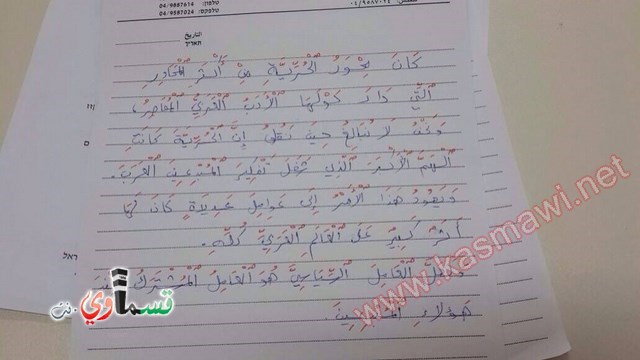 טלפון: 04/9887614
טלפקס: 04/9587024
التاريخ
תאריך
كَانَ مِحْوَرُ الْحُرِّيَّةِ مِنْ أَبْرَزِ الْمَحَاوِرِ
الَّتِي دَارَ حَوْلَهَا الْأَدَبُ الْعَرَبِيُّ الْمُعَاصِرُ،
وَنَحْنُ لَا نُبَالِغُ حِينَ نَقُولُ إِنَّ الْحُرِّيَّةَ كَانَتِ
الْهَمَّ الْأَكْبَرَ الَّذِي شَغَلَ تَفْكِيرَ الْمُبْدِعِينَ الْعَرَبِ.
وَيَعُودُ هَذَا الْأَمْرُ إِلَى عَوَامِلَ عَدِيدَةٍ كَانَ لَهَا
أَثَرٌ كَبِيرٌ عَلَى الْعَالَمِ الْعَرَبِيِّ كُلِّهِ.
الْعَامِلَ السِّيَاسِيَّ هُوَ الْعَامِلُ الْمُشْتَرَكُ بَيْنَ
هَؤُلَاءِ
www.kasmawi.net
قسماوي نت